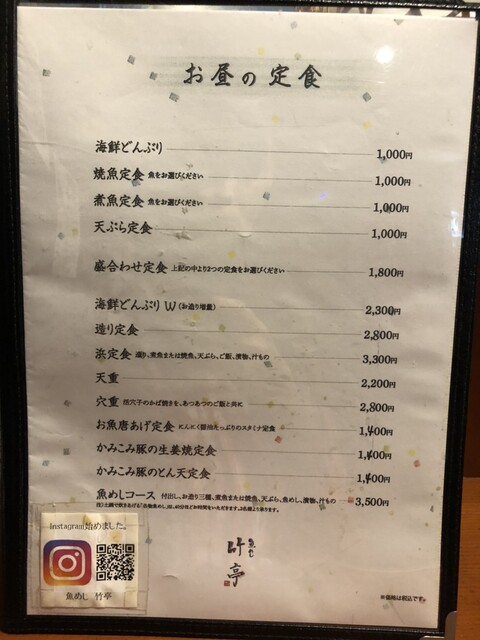 お昼の定食
海鮮どんぶり 1,000円
焼魚定食 魚をお選びください 1,000円
煮魚定食 魚をお選びください 1,000円
天ぷら定食 1,000円
盛合わせ定食 上記の中より2つの定食をお選びください 1,800円
海鮮どんぶりW（お造り増量） 2,300円
造り定食 2,800円
浜定食 造り、煮魚または焼魚、天ぷら、ご飯、漬物、汁もの 3,300円
天重 2,200円
穴重 活穴子のかば焼きを、あつあつのご飯と共に 2,800円
お魚唐あげ定食 にんにく醤油たっぷりのスタミナ定食 1,400円
かみこみ豚の生姜焼定食 1,400円
かみこみ豚のとん天定食 1,400円
魚めしコース 付出し、お造り三種、煮魚または焼魚、天ぷら、魚めし、漬物、汁もの 3,500円
Instagram始めました。
魚めし 竹亭
魚めし
竹亭
※価格は税込です。